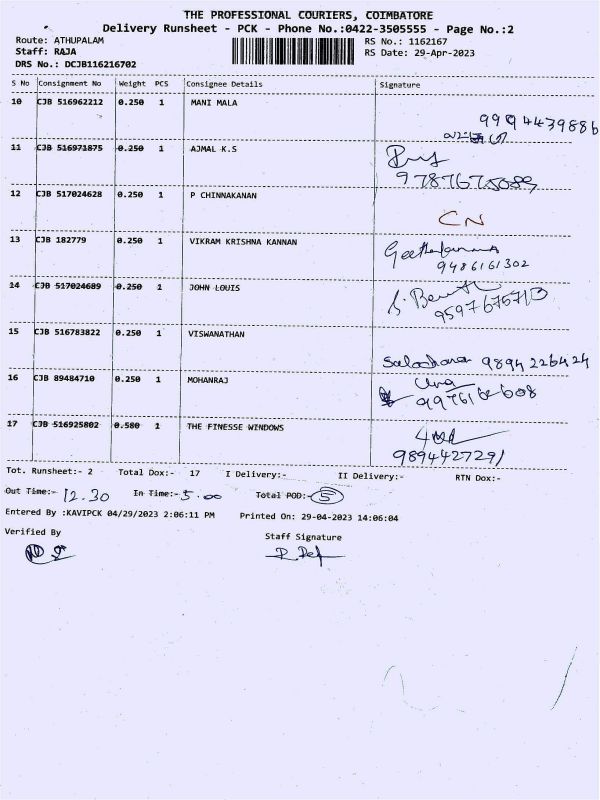 THE PROFESSIONAL COURIERS, COIMBATORE
Delivery Runsheet - PCK - Phone No.:0422-3505555 - Page No.:2
Route: ATHUPALAM
RS No.: 1162167
Staff: RAJA
RS Date: 29-Apr-2023
DRS No.: DCJB116216702
S No Consignment No Weight PCS Consignee Details Signature
10 CJB 516962212 0.250 1 MANI MALA
9994439886
11 CJB 516971875 0.250 1 AJMAL K.S
9787675089
12 CJB 517024628 0.250 1 P CHINNAKANAN
CN
13 CJB 182779 0.250 1 VIKRAM KRISHNA KANNAN
9486161302
14 CJB 517024689 0.250 1 JOHN LOUIS
9597675713
15 CJB 516783822 0.250 1 VISWANATHAN
9894226424
16 CJB 89484710 0.250 1 MOHANRAJ
17 CJB 516925802 0.580 1 THE FINESSE WINDOWS
9894427291
Tot. Runsheet:- 2 Total Dox:- 17 I Delivery:- II Delivery:- RTN Dox:-
Out Time:- 12.30 In Time:- 5.00 Total POD:- 5
Entered By :KAVIPCK 04/29/2023 2:06:11 PM Printed On: 29-04-2023 14:06:04
Verified By
Staff Signature